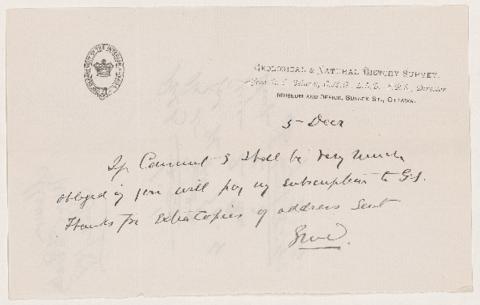 GEOLOGICAL & NATURAL HISTORY SURVEY.
C.M.G., L.L.D., F.R.S., Director
MUSEUM AND OFFICE, SUSSEX ST., OTTAWA.
5 Decr
If Council I shall be very much
obliged if you will pay my subscription to G.S.
Thanks for extra copies of address sent